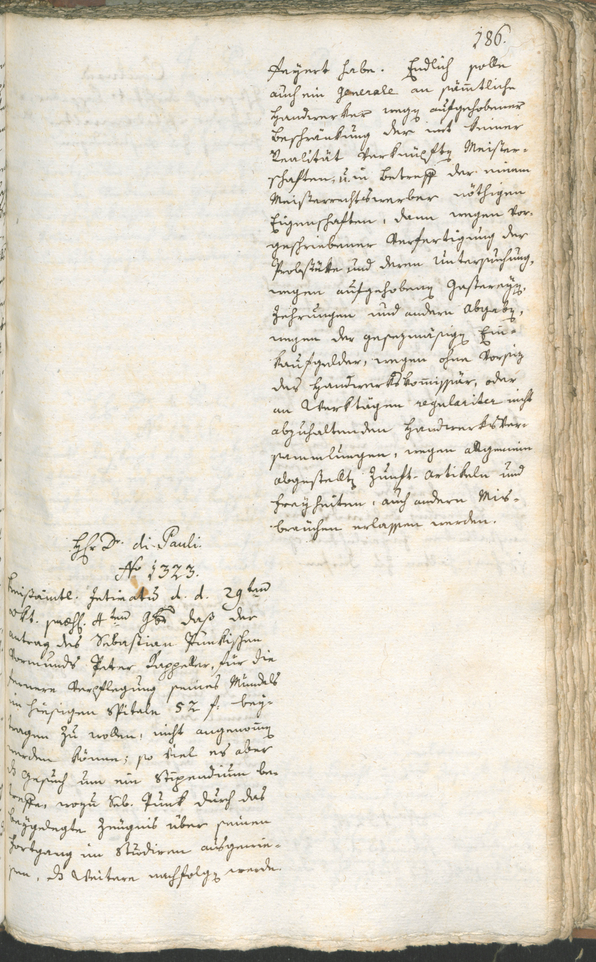 186.
feyert habe. Endlich solle
auch ein generale an sämtliche
Handwerker wegen aufgehobener
Beschränkung der mit keiner
Realität verknüpften Meister-
schaften, u. in Betreff der einem
Meisterrechtswerber nöthigen
Eigenschaften, dann wegen vor-
geschriebener Verfertigung der
Probstüke und deren Untersuchung,
wegen aufgehobenen Gastereyen,
Zehrungen und andern Abgaben,
wegen der gesezmäsigen Ein-
kaufgelder, wegen ohne Vorsiz
des Handwerkskommissär, oder
an Werktägen regulariter nicht
abzuhaltenden Handwerksver-
sammlungen, wegen allgemein
abgestellten Zunft-Artikeln und
Freyheiten, auch andern Mis-
bräuchen erlassen werden.
Hr Dr. di Pauli.
No 1323.
Kreisämtl. Intimatum d. d. 29ten
8kt. praes. 4ten 9br daß der
Antrag des Sebastian Punkischen
Vormunds Peter Kappeller, für die
fernere Verpflegung seines Mündels
im hiesigen Spitale 52 f. bey-
tragen zu wollen, nicht angenommen
werden könne; so viel es aber
das Gesuch um ein Stipendium be-
treffe, wozu Seb. Punk durch das
beygelegte Zeugnis über seinen
Fortgang im Studiren ausgewie-
sen, das Weitere nachfolgen werde.